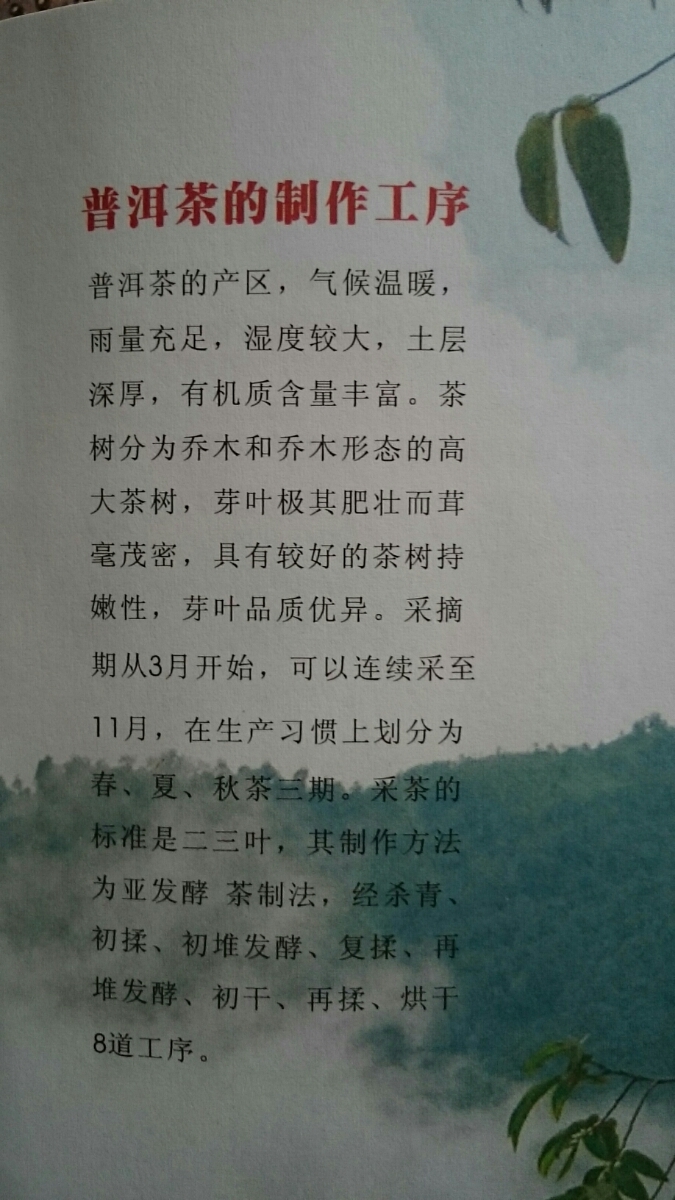 普洱茶的制作工序
普洱茶的产区，气候温暖，
雨量充足，湿度较大，土层
深厚，有机质含量丰富。茶
树分为乔木和乔木形态的高
大茶树，芽叶极其肥壮而茸
毫茂密，具有较好的茶树持
嫩性，芽叶品质优异。采摘
期从3月开始，可以连续采至
11月，在生产习惯上划分为
春、夏、秋茶三期。采茶的
标准是二三叶，其制作方法
为亚发酵 茶制法，经杀青、
初揉、初堆发酵、复揉、再
堆发酵、初干、再揉、烘干
8道工序。